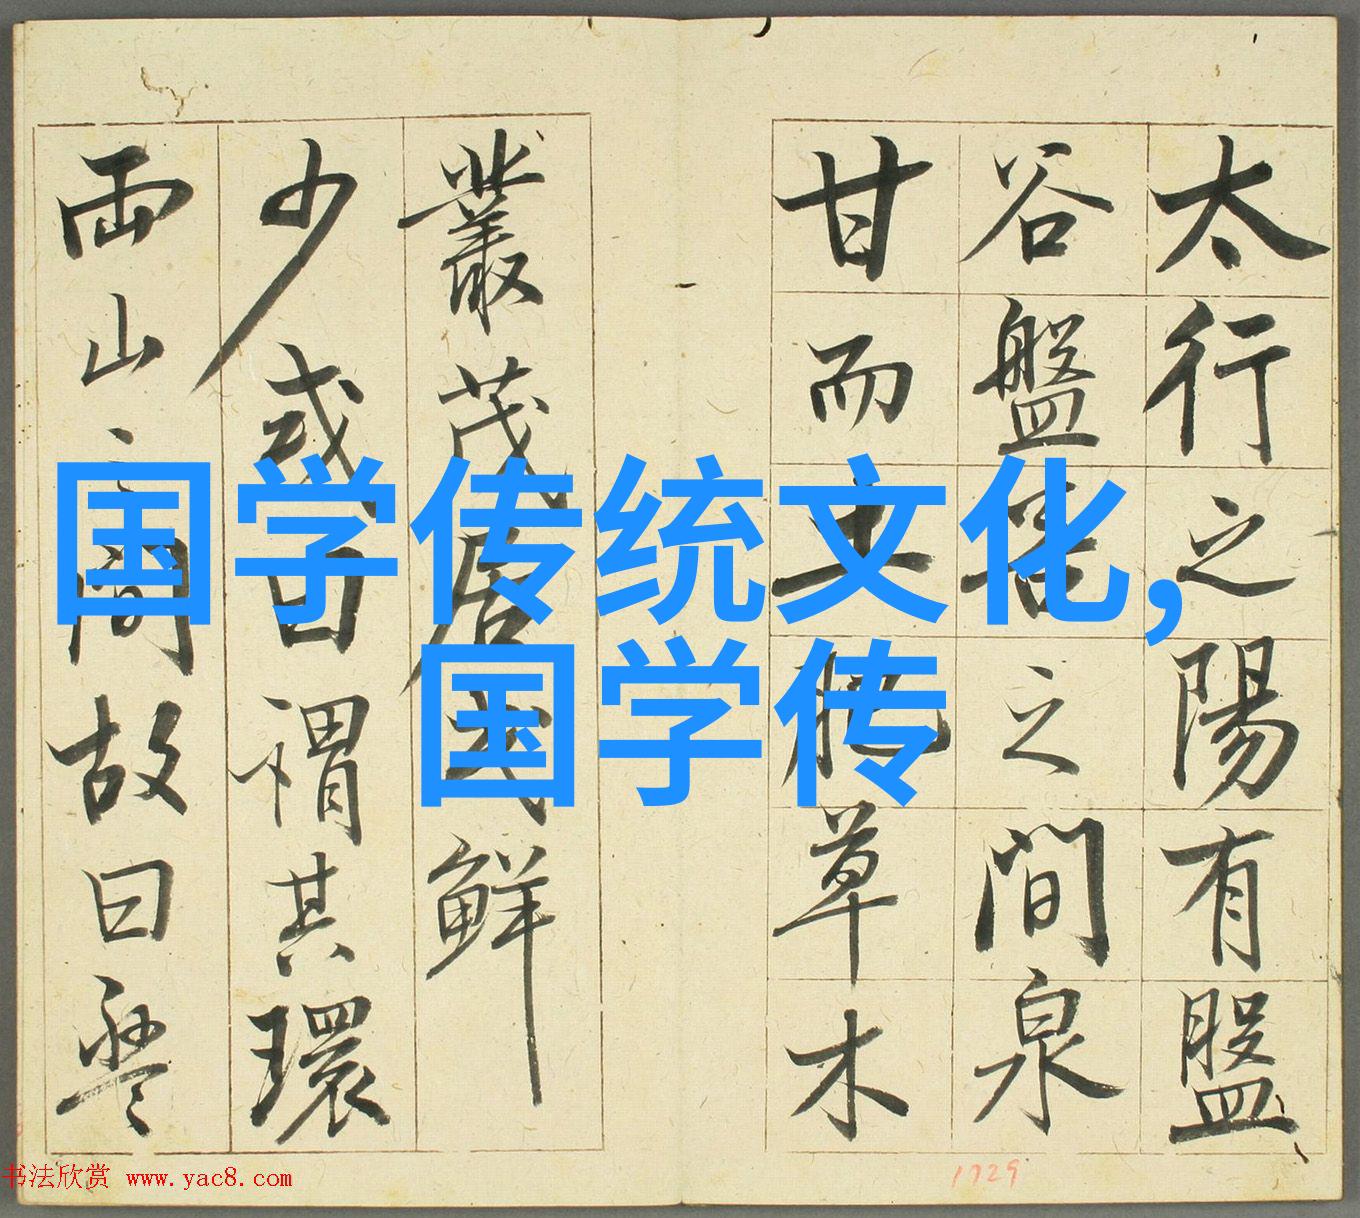 太行之陽有盤
谷盤谷之間泉
甘而土肥草木
叢茂居民鮮
少或曰謂其環
兩山之間故曰盤
国学传统文化,
国学传
书法欣赏 www.yac8.com
1729